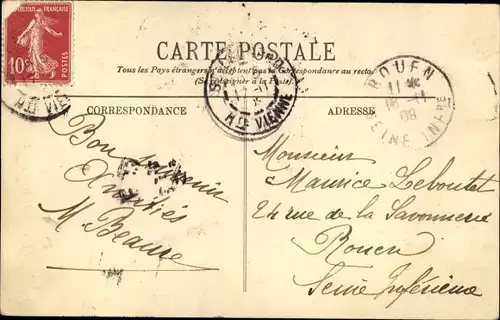 RÉPUBLIQUE FRANÇAISE
10c
CARTE POSTALE
Tous les Pays étrangers n'acceptent pas la Correspondance au recto
(Se renseigner à la Poste).
HTE VIENNE
ROUEN
11
18 - 11
08
SEINE INFRE
HTE VIENNE
CORRESPONDANCE
ADRESSE
Bon souvenir
Amitiés
M Beaure
Monsieur
Maurice Leboutet
24 rue de la Savonnerie
Rouen
Seine Inférieure